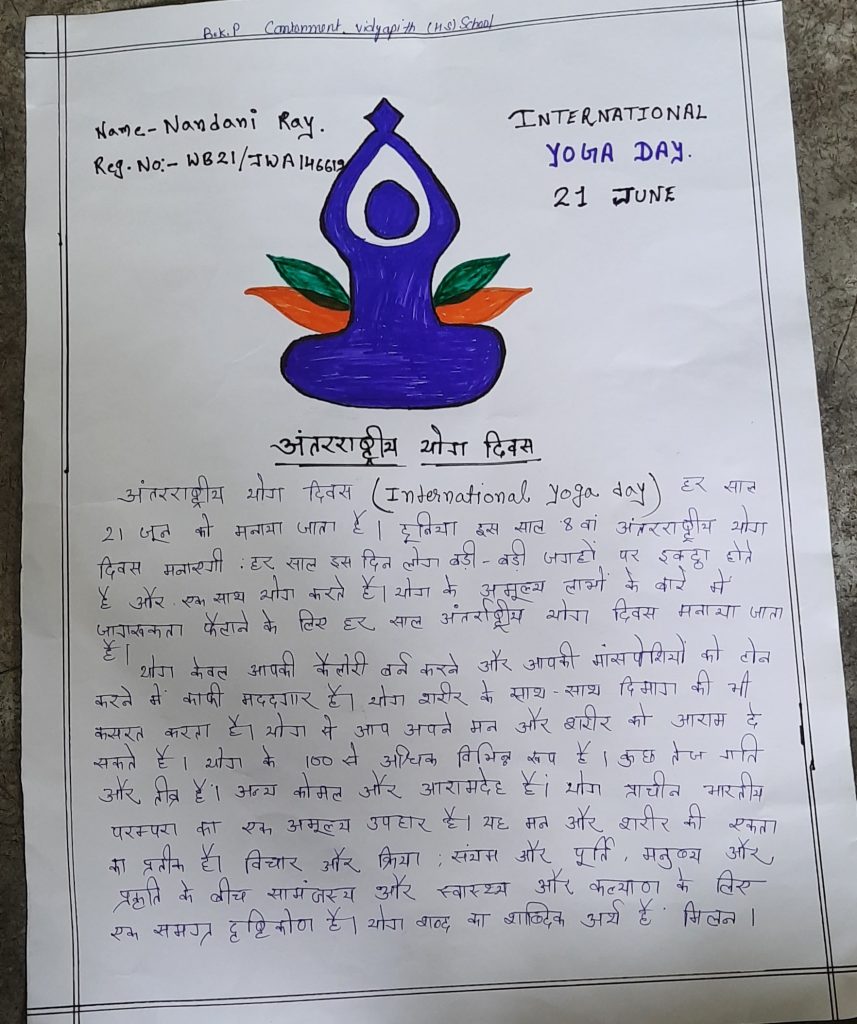 B.K.P Cantonment. Vidyapith (HS) School
Name - Nandani Ray.
Reg. No:- WB21/JWA146619
INTERNATIONAL
YOGA DAY.
21 JUNE
अंतरराष्ट्रीय योग दिवस
अंतरराष्ट्रीय योग दिवस (International yoga day) हर साल
21 जून को मनाया जाता है। दूनिया इस साल 8 वां अंतरराष्ट्रीय योग
दिवस मनाएगी : हर साल इस दिन लोग बड़ी-बड़ी जगहों पर इकट्ठा होते
है और एक साथ योग करते है। योग के अमूल्य लाभों के बारे में
जागरूकता फैलाने के लिए हर साल अंतर्राष्ट्रीय योग दिवस मनाया जाता
है।
योग केवल आपकी कैलोरी बर्न करने और आपकी मांसपेशियों को टोन
करने में काफी मददगार है। योग शरीर के साथ-साथ दिमाग की भी
कसरत करता है। योग में आप अपने मन और शरीर को आराम दे
सकते है। योग के 100 से अधिक विभिन्न रूप है। कुछ तेज गति
और तीव्र है। अन्य कोमल और आरामदेह है। योग प्राचीन भारतीय
परम्परा का एक अमूल्य उपहार है। यह मन और शरीर की एकता
का प्रतीक है। विचार और क्रिया; संयम और पूर्ति, मनुष्य और
प्रकृति के बीच सामंजस्य और स्वास्थ्य और कल्याण के लिए
एक समग्र दृष्टिकोण है। योग शब्द का शाब्दिक अर्थ है मिलन।